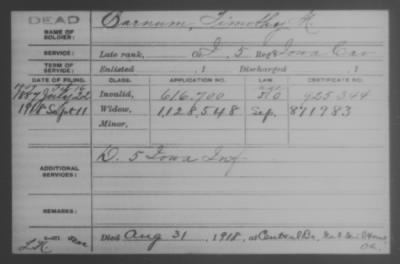 DEAD
Carnum, Timothy K.
NAME OF SOLDIER:
SERVICE:
Late rank, Co. I, 5 Reg't Iowa Cav
TERM OF SERVICE:
Enlisted , 1 Discharged , 1
DATE OF FILING. CLASS. APPLICATION NO. LAW. CERTIFICATE NO.
1887 July 22 Invalid, 616,700 925,344
1918 Sept 11 Widow, 1,128,548 Sep. 871,983
Minor,
ADDITIONAL SERVICES:
D. 5 Iowa Inf
REMARKS:
Died Aug 31, 1918, at Central Br.